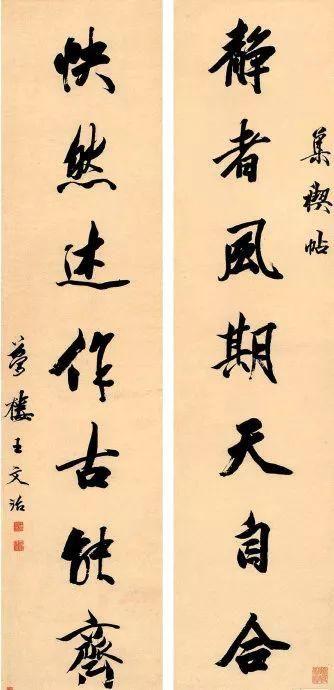 集禊帖
静者風期天自合
快然述作古能齊
夢樓王文治